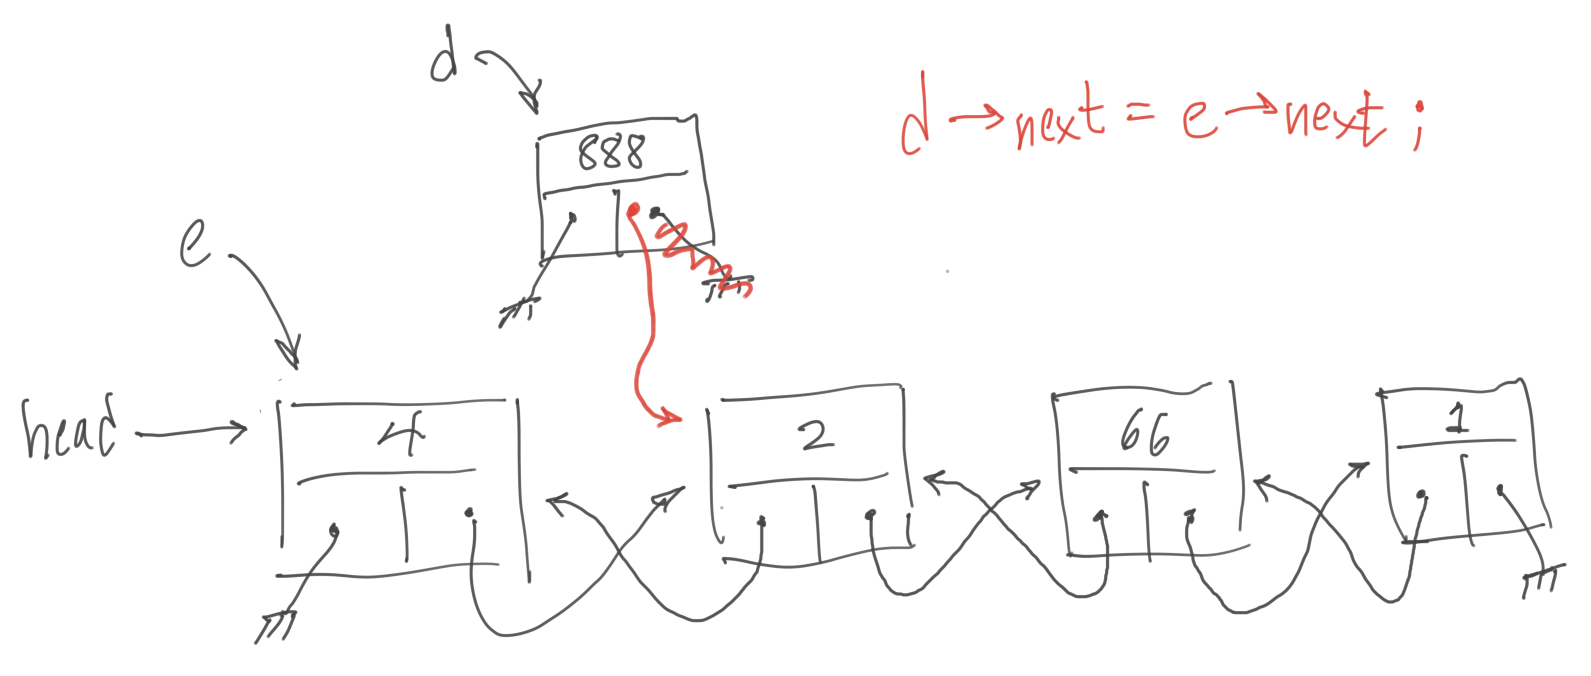 d
888
d→next = e→next ;
e
head
4
2
66
1